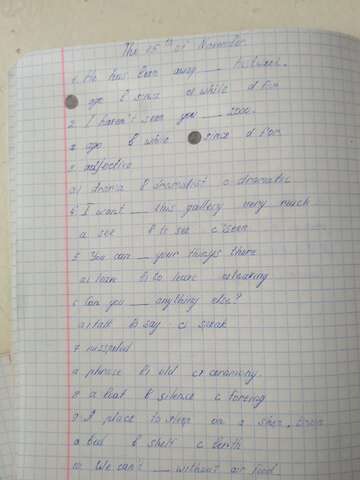 The 15th of November
1. He has been away ___
ago b since c while d for
2. I haven't seen you ___ 2000.
a ago b while since d for
3. adjective
a) drama b dramatist c dramatic
4. I want ___ this gallery very much
a see b to see c seen
5. You can ___ your things there
a) b) to
6. Can you ___ anything else?
a) talk b) say c) speak
7. misspelled
a. phrase b) old c) ceremony.
8. a b silence c
9. A place to sleep on a
a bed b shelf c berth
10. We can't ___ without air food